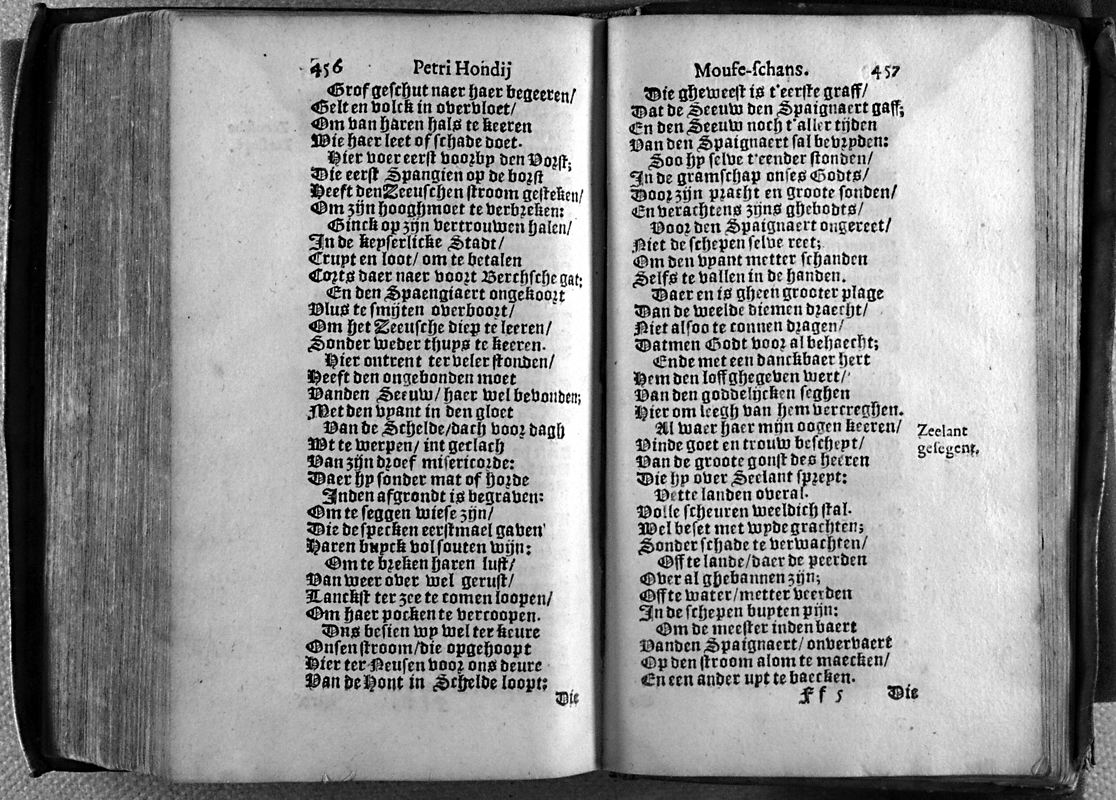 456 Petri Hondij
Grof geschut naer haer begeeren/
Gelt en volck in overvloet/
Om van haren hals te keeren
Wie haer leet of schade doet.
Hier voer eerst voorby den Vorst;
Die eerst Spangien op de borst
Heeft den Zeeuschen stroom gesteken/
Om zijn hooghmoet te verbreken:
Ginck op zijn vertrouwen halen/
In de keyserlicke Stadt/
Cruyt en loot/ om te betalen
Corts daer naer voort Berchsche gat:
En den Spaengiaert ongekoort
Vlus te smijten overboort/
Om het Zeeusche diep te leeren/
Sonder weder thuys te keeren.
Hier ontrent ter veler stonden/
Heeft den ongebonden moet
Vanden Seeuw/ haer wel bevonden;
Met den vyant in den gloet
Van de Schelde/dach voor dagh
Wt te werpen/ int geclach
Van zijn droef misericorde:
Daer hy sonder mat of horde
Inden afgrondt is begraven:
Om te seggen wiese zijn/
Die de specken eerstmael gaven
Haren buyck vol souten wijn:
Om te breken haren lust/
Van weer over wel gerust/
Lanckst ter zee te comen loopen/
Om haer pocken te vercoopen.
Ons besien wy wel ter keure
Onsen stroom/die opgehoopt
Hier ter Neusen voor ons deure
Van de Hont in Schelde loopt:
Die
Mouse-schans. 457
Die gheweest is t'eerste graff/
Dat de Seeuw den Spaignaert gaff;
En den Seeuw noch t'aller tijden
Van den Spaignaert sal bevryden:
Soo hy selve t'eender stonden/
In de gramschap onses Godts/
Door zijn pracht en groote sonden/
En verachtens zijns ghebodts/
Voor den Spaignaert ongereet/
Niet de schepen selve reet;
Om den vyant metter schanden
Selfs te vallen in de handen.
Daer en is gheen grooter plage
Dan de weelde diemen draecht/
Niet alsoo te connen dragen/
Datmen Godt voor al behaecht;
Ende met een danckbaer hert
Hem den loff ghegeven wert/
Van den goddelijcken seghen
Hier om leegh van hem vercreghen.
Al waer haer mijn oogen keeren/
Vinde goet en trouw bescheyt/
Van de groote gonst des heeren
Die hy over Seelant spreyt:
Vette landen overal.
Volle scheuren weeldich stal.
Wel beset met wyde grachten;
Sonder schade te verwachten/
Off te lande/daer de peerden
Over al ghebannen zijn;
Off te water/metter veerden
In de schepen buyten pijn:
Om de meester inden baert
Vanden Spaignaert/ onvervaert
Op den stroom alom te maecken/
En een ander uyt te baecken.
Zeelant
gesegent.
Ff 5 Die